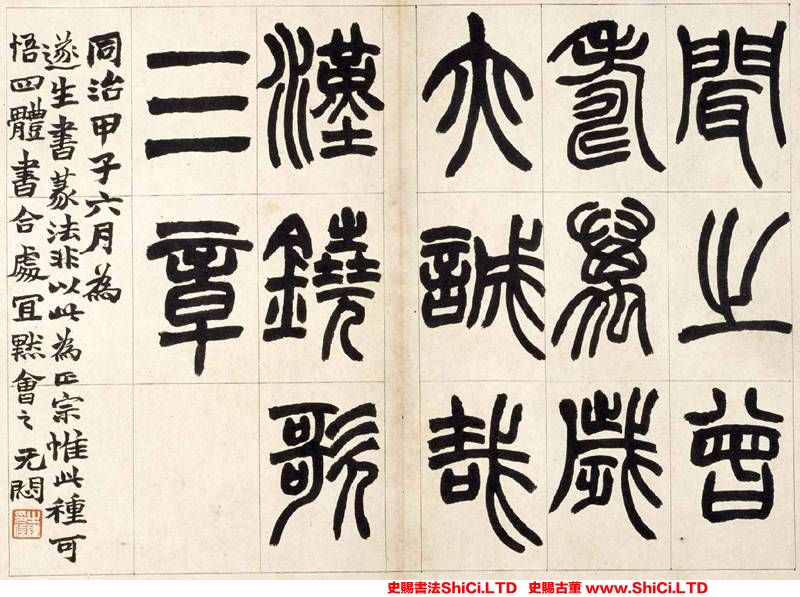 聞之曾
壽萬歲
亦誠哉
漢鐃歌
三章
同治甲子六月為
遂生書篆法非以此為正宗惟此種可
悟四體書合處冝默會之 无悶
史賜書法ShiCi.LTD 史賜古董 www.ShiCi.LTD